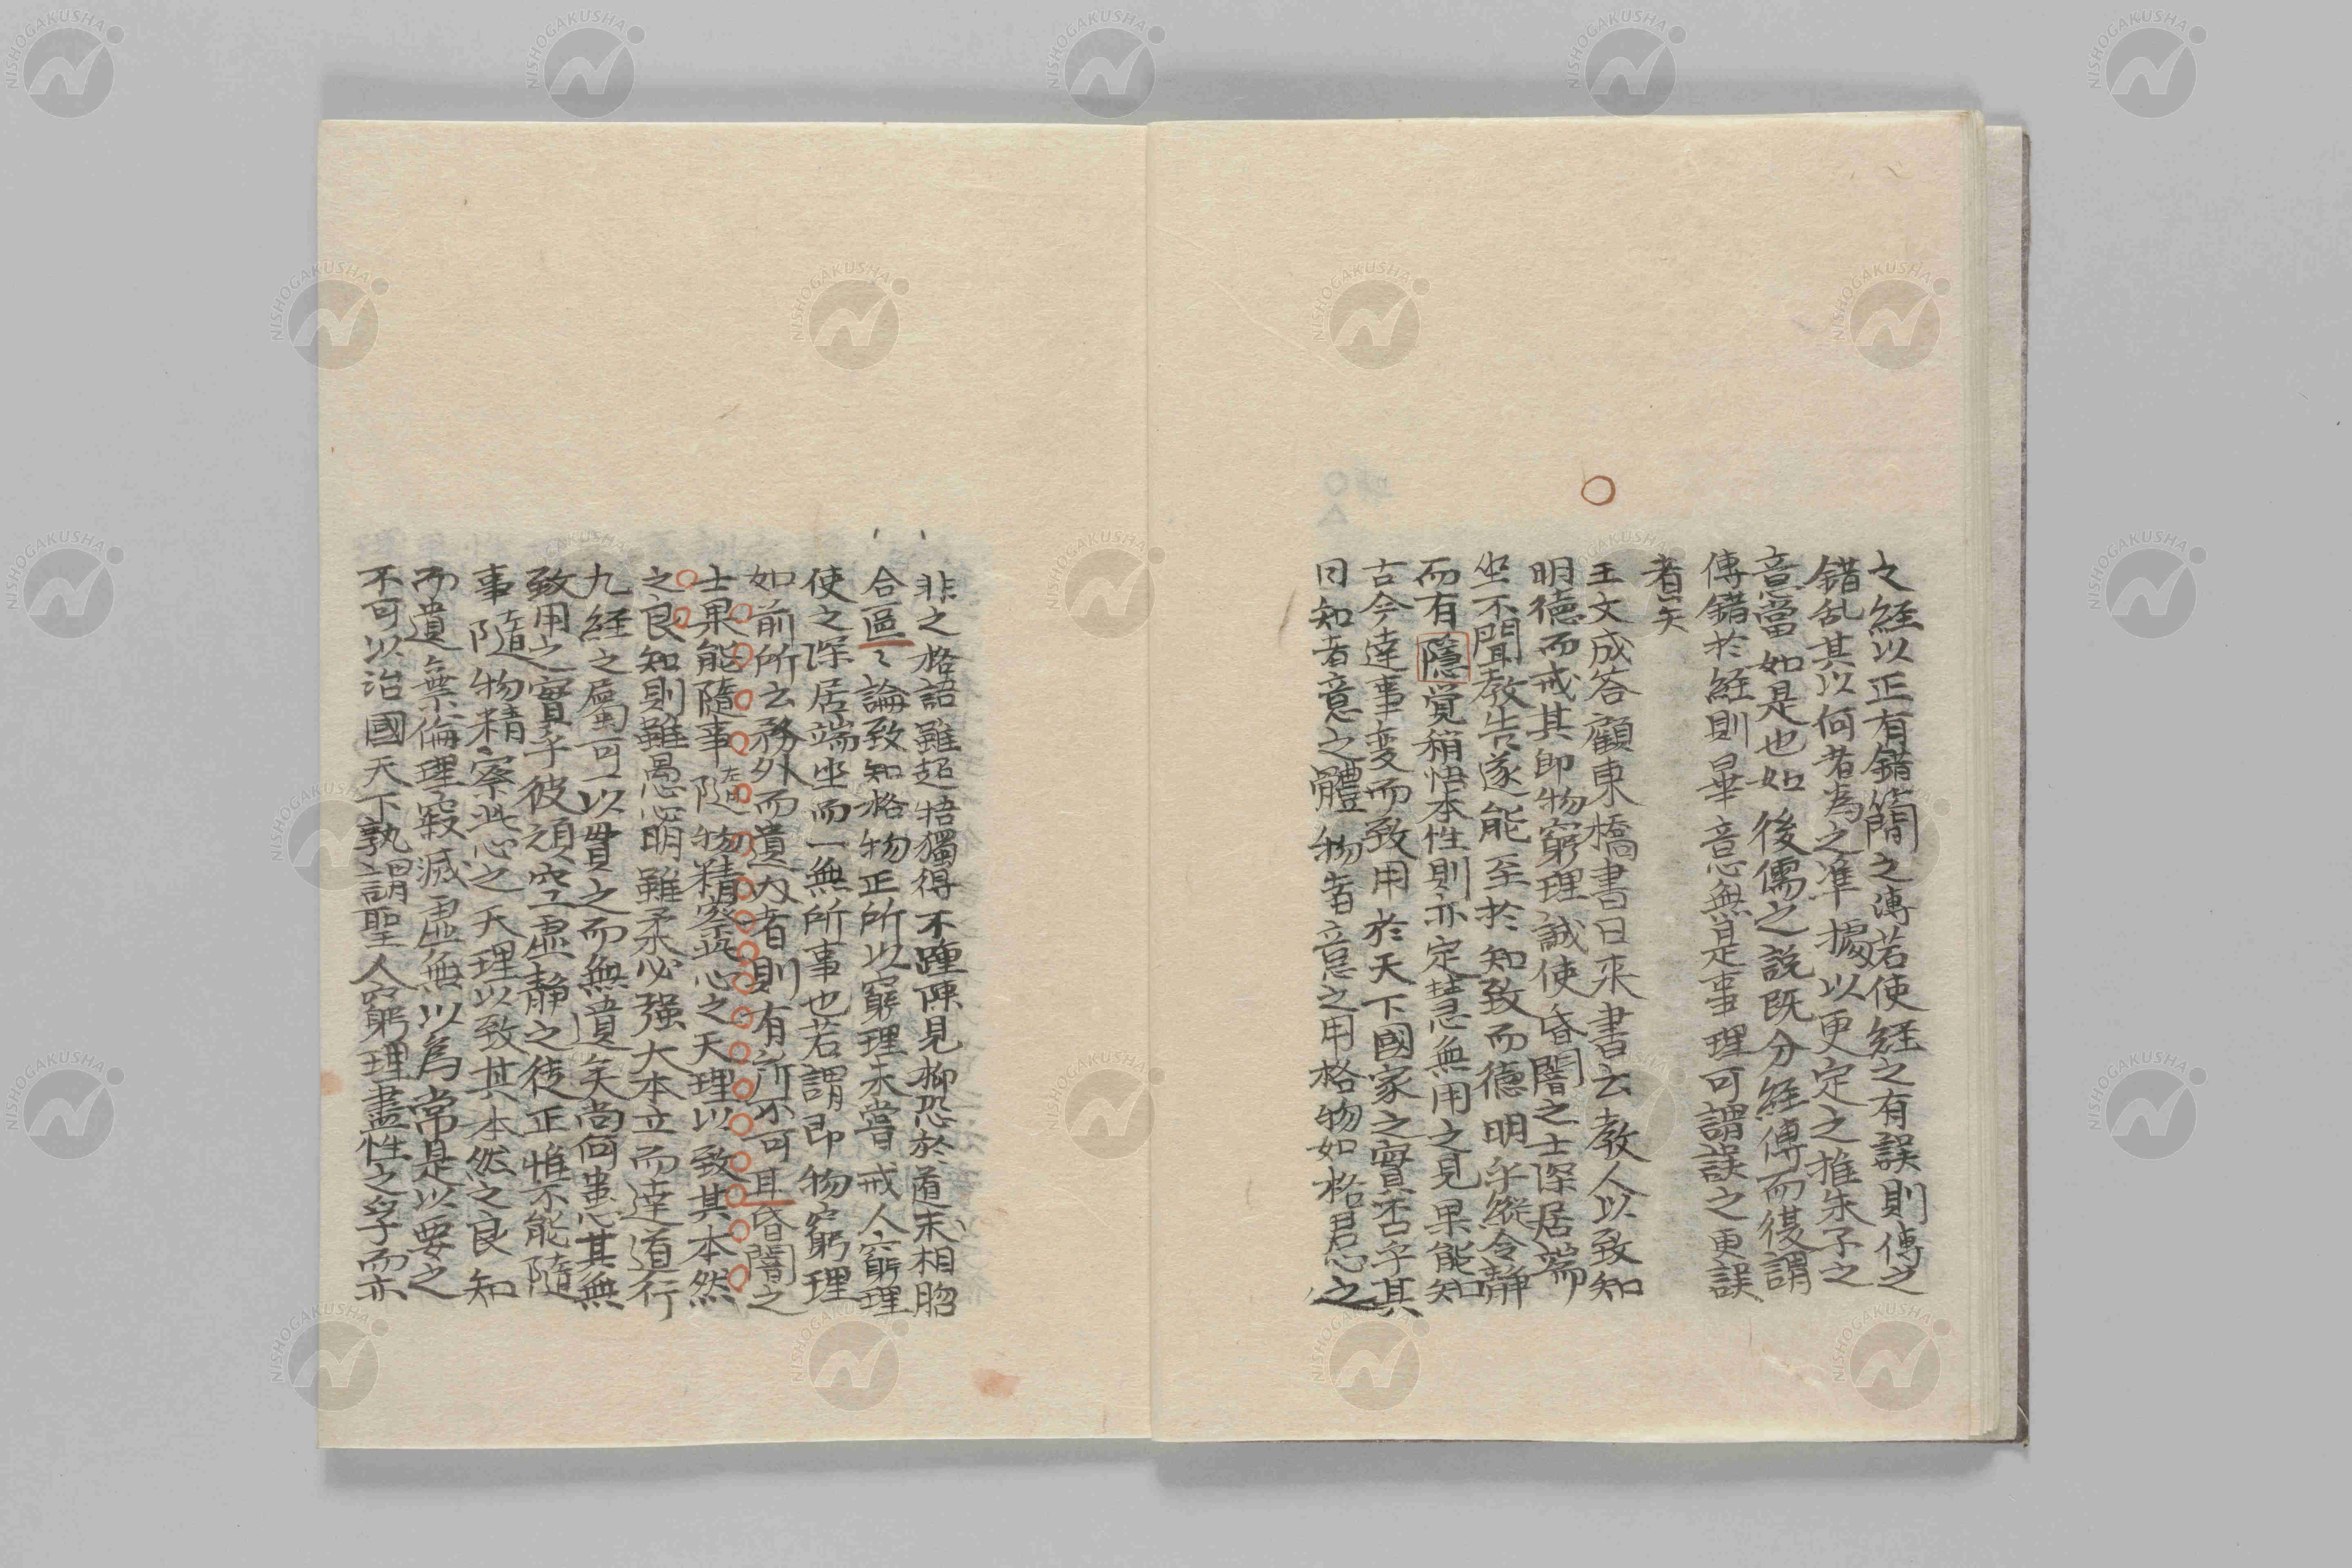 之經以正有錯簡之傳若使經之有誤則傳之
錯乱其以何者為之準據以更定之推朱子之
意當如是也如後儒之説既分經傳而復謂
傳錯於經則畢竟無是事理可謂誤之更誤
者矣
王文成答顧東橋書曰来書云教人以致知
明德而戒其即物窮理誠使昏闇之士深居端
坐不聞教告遂能至於知致而德明乎縱令静
而有隱覚稍悟本性則亦定慧無用之見果能知
古今達事変而致用於天下國家之實否乎其
曰知者意之體物者意之用格物如格君心之
非之格語雖超悟獨得不踵陳見抑恐於道未相脗
合區〻論致知格物正所以窮理未嘗戒人窮理
使之深居端坐而一無所事也若謂即物窮理
如前所云務外而遺内者則有所不可耳昏闇之
士果能隨事隨物精察此心之天理以致其本然
之良知則雖愚必明雖柔必强大本立而達道行
九經之屬可一以貫之而無遺矣尚何患其無
致用之實乎彼頑空虚静之徒正惟不能隨
事隨物精察此心之天理以致其本然之良知
而遺棄倫理寂滅虚無以為常是以要之
不可以治國天下孰謂聖人窮理盡性之學而亦
NISHOGAKUSHA